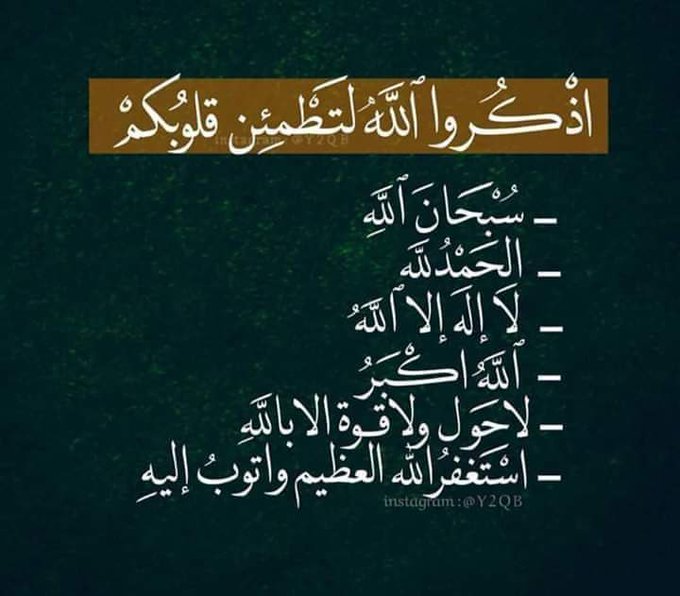 اذْكُروا ٱللَّهُ لتَطْمئِن قلوُبكمْ
instagram : @Y2QB
– سُبْحَانَ ٱللَّهِ
– الحَمْدُ للَّه
– لَا إلهَ إلا ٱللَّهُ
– ٱللَّهُ اكْبَرُ
– لاحَول ولا قوة الا باللَّهِ
– اسْتَغفرُ اللَّه العظيم واتوبُ إليهِ
instagram : @Y2QB